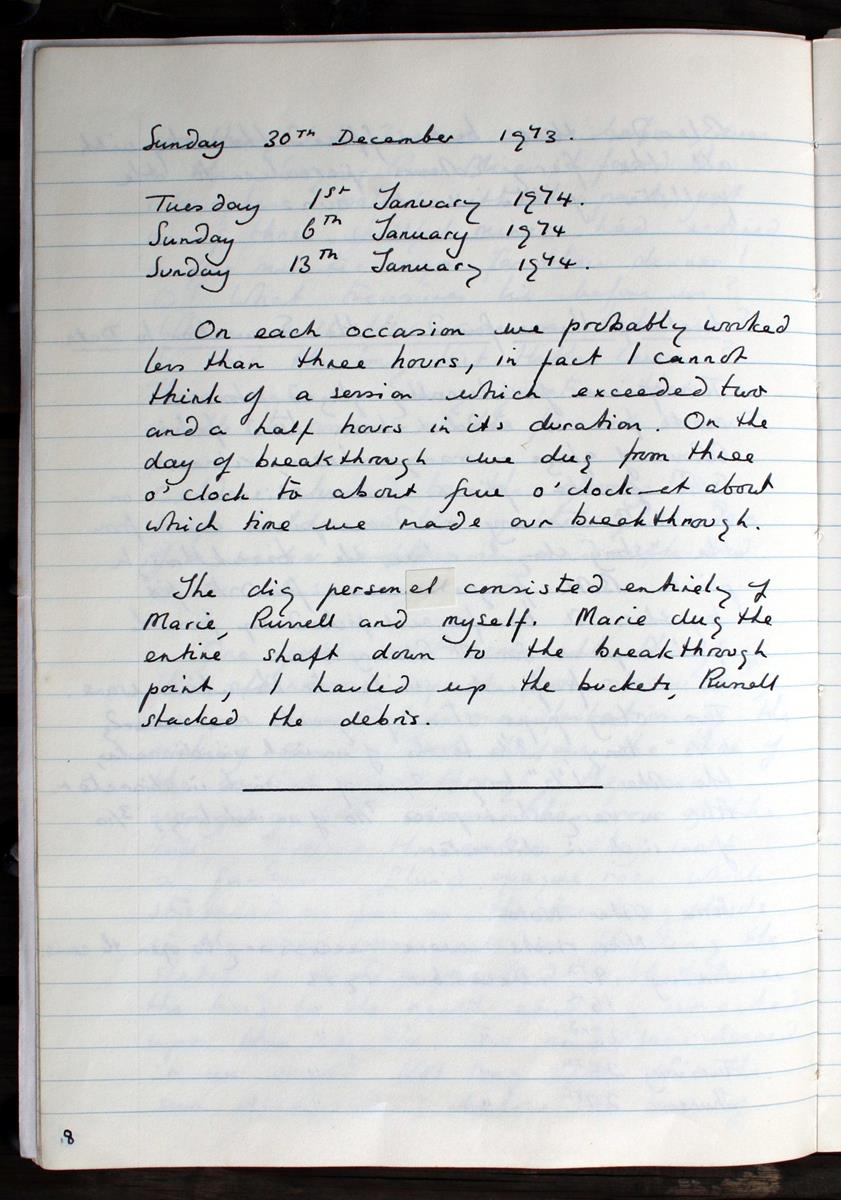 Sunday 30TH December 1973.
Tuesday 1st January 1974.
Sunday 6TH January 1974
Sunday 13TH January 1974.
On each occasion we probably worked
less than three hours, in fact I cannot
think of a session which exceeded two
and a half hours in its duration. On the
day of breakthrough we dug from three
o'clock to about five o'clock at about
which time we made our breakthrough.
The dig personel consisted entirely of
Marie, Russell and myself. Marie dug the
entire shaft down to the breakthrough
point, I hauled up the buckets, Russell
stacked the debris.
8